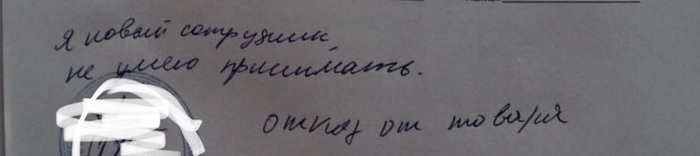 я новый сотрудник,
не умею принимать.
отказ от товара